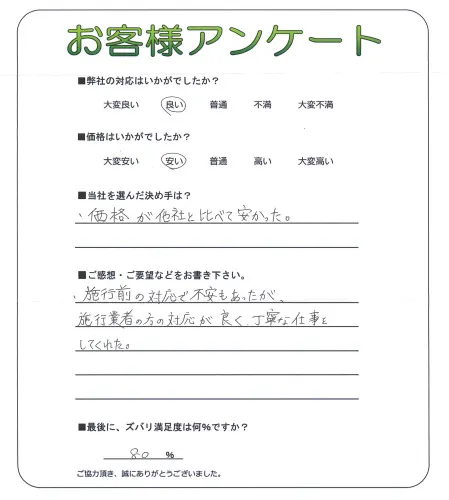 お客様アンケート
■弊社の対応はいかがでしたか？
大変良い 良い 普通 不満 大変不満
■価格はいかがでしたか？
大変安い 安い 普通 高い 大変高い
■当社を選んだ決め手は？
、価格が他社と比べて安かった。
■ご感想・ご要望などをお書き下さい。
、施行前の対応で不安もあったが、
施行業者の方の対応が良く、丁寧な仕事を
してくれた。
■最後に、ズバリ満足度は何%ですか？
80 %
ご協力頂き、誠にありがとうございました。